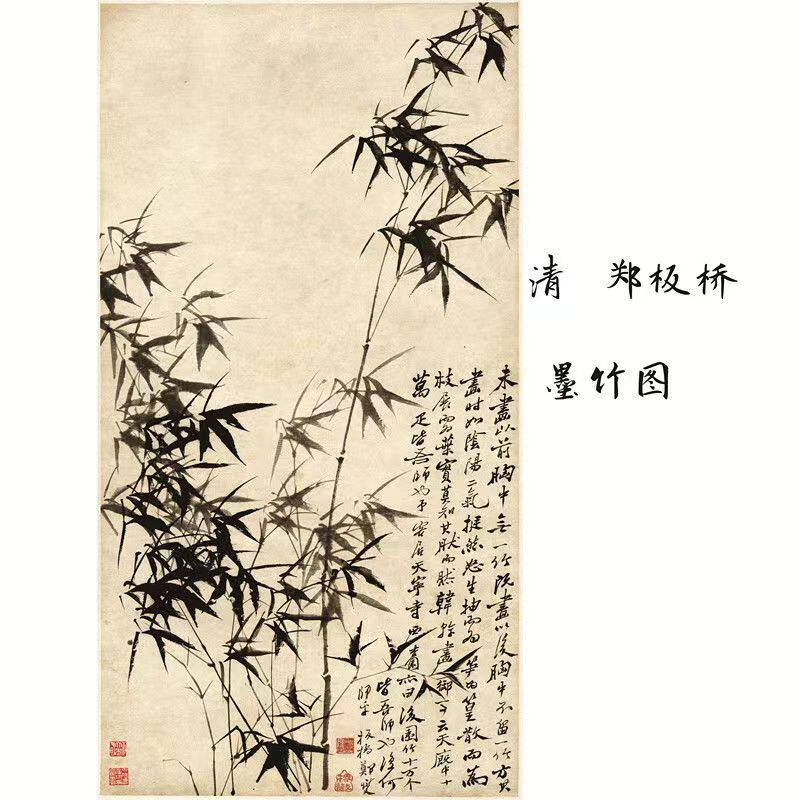 清 郑板桥
墨竹图
未畫以前胸中無一竹既畫以後胸中不留一竹方其
畫時如陰陽二氣挺然怒生抽而為笋為篁散而為
枝展而為葉實莫知其然而然韓幹畫御馬云天廄中十
萬疋皆吾師也予客居天寧寺西杏園亦曰後園竹十万个
皆吾師也復何
師乎 板橋鄭燮